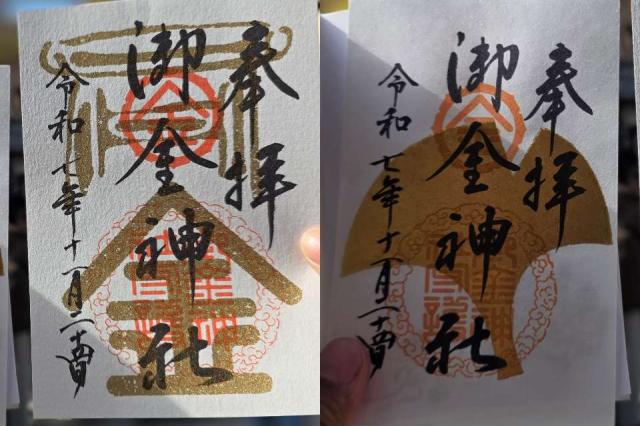 奉拝
御金神社
令和七年十一月二十四日
奉拝
御金神社
令和七年十一月二十四日